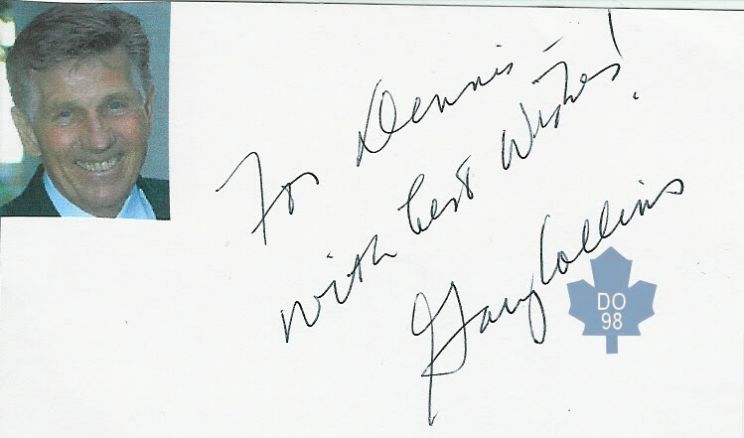 For Dennis –
with best Wishes!
Gary Collins
DO
98